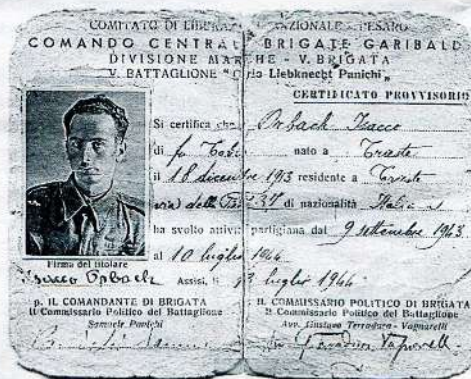 COMITATO DI LIBERAZ NAZIONALE PESARO
COMANDO CENTRAL BRIGATE GARIBALD
DIVISIONE MAR HE - V. BRIGATA
V. BATTAGLIONE "C rlo Liebknecht Panichi"
CERTIFICATO PROVVISORIO
Si certifica che Orback Isacco
di fu Tobia nato a Trieste
il 18 dicembre 1913 residente a Trieste
via della 37 di nazionalità Italiana
ha svolto attivi partigiana dal 9 settembre 1943
al 10 luglio 1944
Firma del titolare
Isacco Orbach Assisi, li luglio 1944
p. IL COMANDANTE DI BRIGATA
Il Commissario Politico del Battaglione
Samuele Panichi
IL COMMISSARIO POLITICO DI BRIGATA
Il Commissario Politico del Battaglione
Avv. Gustavo Terradura - Vagnarelli